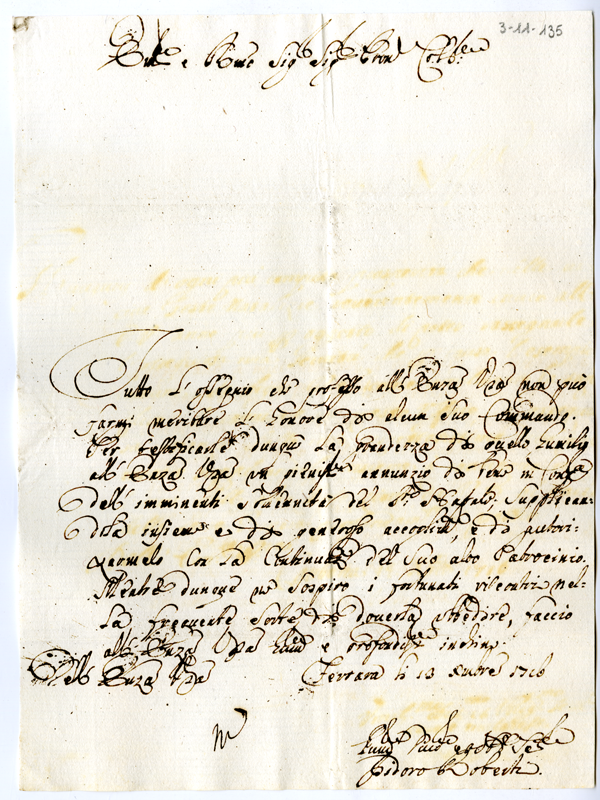 3-11-135
Em.mo e R.mo Sig.r Sig.r Pron Col.mo
Tutto l'ossequio che professo all'Emza Vra non può
farmi meritare l'honore di alcun suo Commando.
Per testificarle dunque la prontezza di quello humilio
all'Emza Vra un annunzio di bene in
dell'imminenti sollennità del S.to Natale, supplican-
dola insieme e di generoso accoglim.to, e di autori-
zarmelo con la Continuaz.e del Suo alto Patrocinio.
Mentre dunque ne sospiro i fortunati riscontri nel-
la frequente sorte di doverla ubbidire, faccio
all'Emza Vra hum.ma e profondis.ma inchino.
Dell'Emza Vra
Ferrara li 13 Xbre 1718
Hum.mo
Isidoro Roberti.